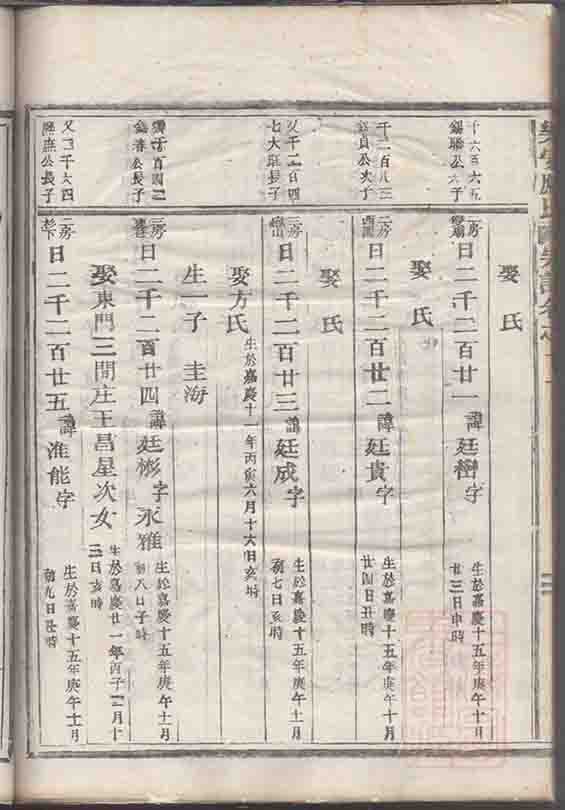 娶氏
十六百六五
錫聯公六子
二房
日二千二百廿一諱廷巒字
生於嘉慶十五年庚午十月
廿三日申時
娶氏
千二百八三
錫貞公次子
二房
西園
日二千二百廿二諱廷貴字
生於嘉慶十五年庚午十月
廿四日丑時
娶氏
又千二百四
七大琨長子
三房
日二千二百廿三諱廷成字
生於嘉慶十五年庚午十一月
初七日亥時
娶方氏
生於嘉慶十一年丙寅六月十六日亥時
生一子 圭海
錫春公長子
三房
日二千二百廿四諱廷彬字永雅
生於嘉慶十五年庚午十一月
初八日子時
娶東門三間庄王昌星次女
生於嘉慶廿一年丙子十二月十
二日亥時
公長子
二房
日二千二百廿五諱准能字
生於嘉慶十五年庚午十一月
初九日丑時